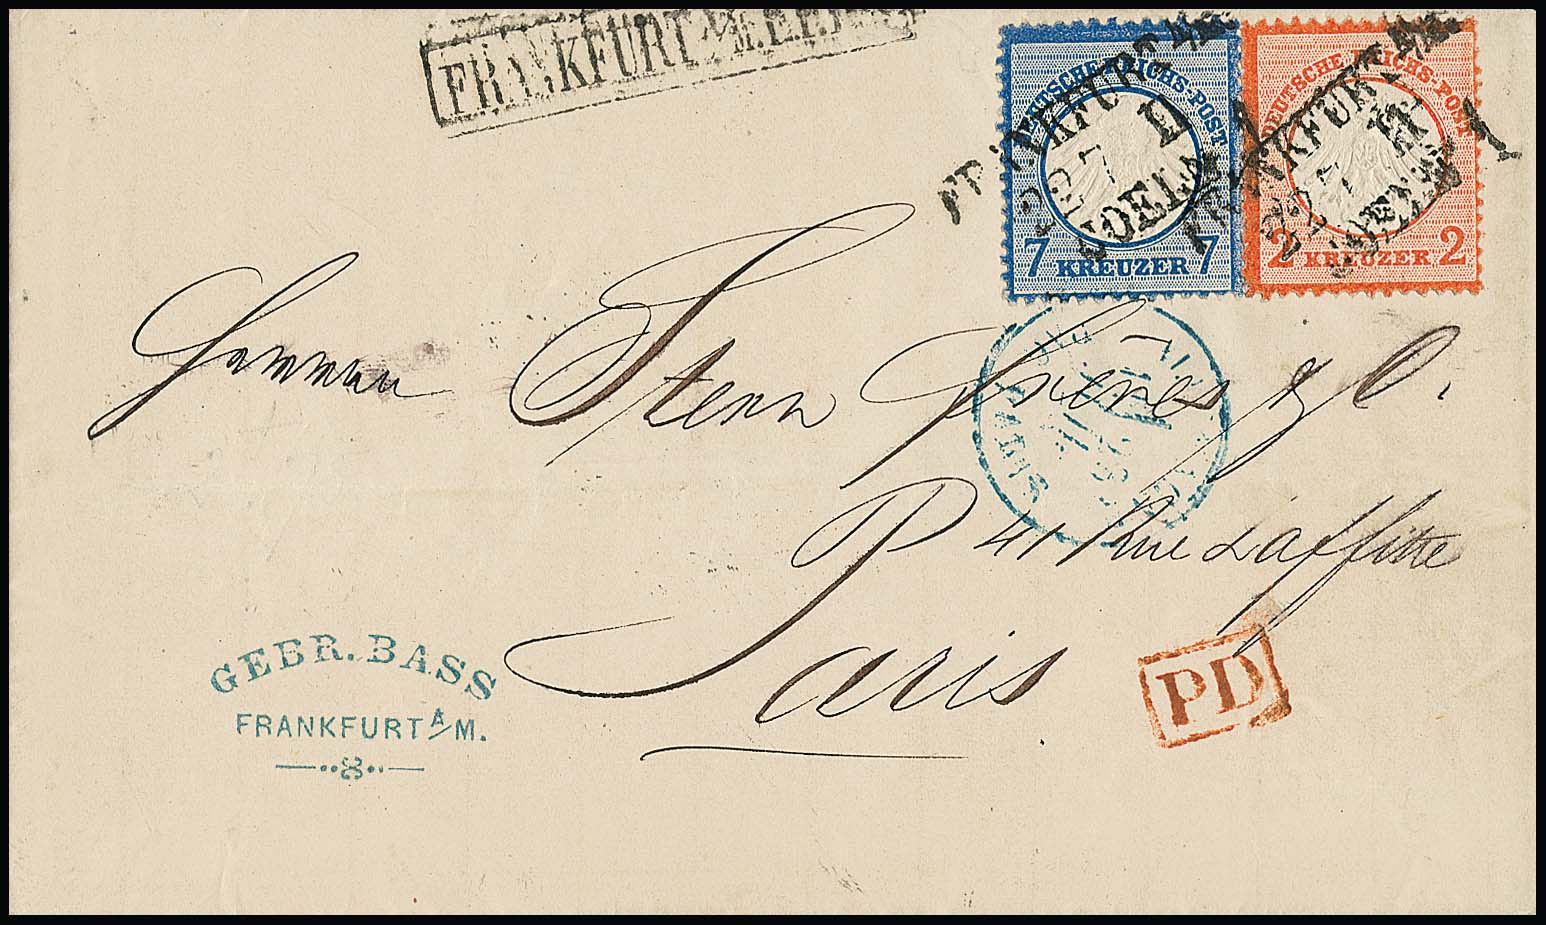 FRANKFURT A/M. E.P.B.
DEUTSCHE REICHS-POST
7 KREUZER 7
DEUTSCHE REICHS-POST
2 KREUZER 2
FRANKFURT A.M.
22 7
FRANKFURT A.M. 1
22 7
Stern Frères & C.
41 Rue Laffitte
Paris
PD
GEBR. BASS
FRANKFURT A/M.